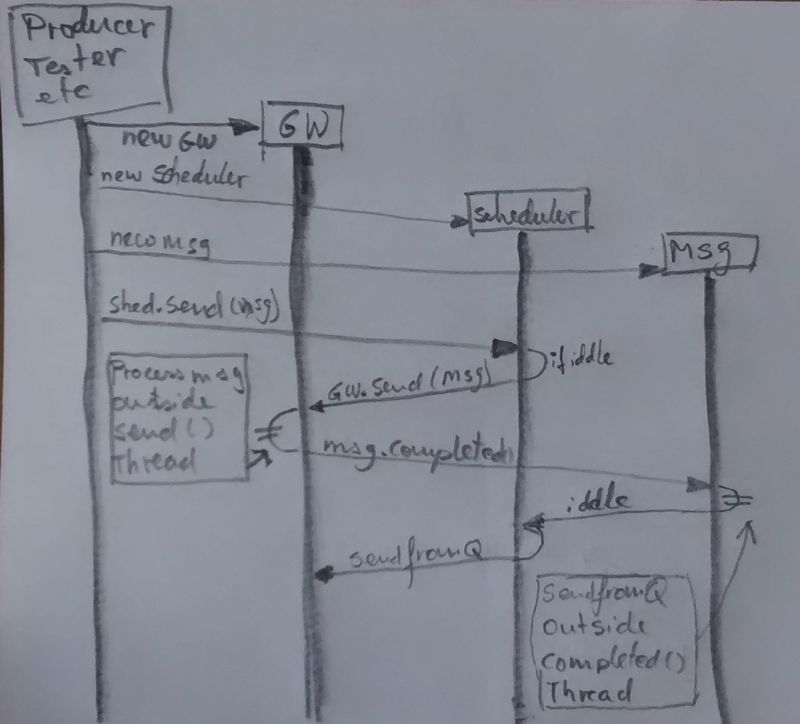 Producer
Tester
etc
GW
new GW
new Scheduler
Scheduler
new Msg
Msg
shed.send(msg)
if iddle
GW.send(msg)
Process msg
outside
send()
Thread
msg.completed()
iddle
sendfromQ
SendfromQ
outside
completed()
Thread